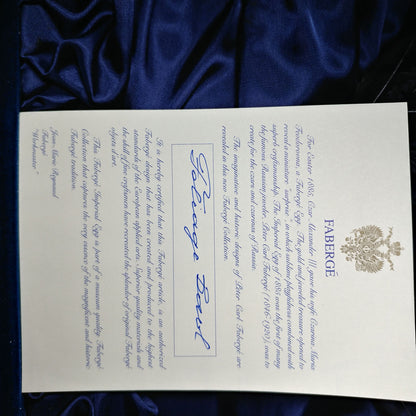 FABERGÉ
For Easter 1885, Czar Alexander III gave his wife Czarina Maria
Feodorovna, a Fabergé Egg. The gold and jeweled treasure opened to
reveal a miniature "surprise", in which sublime playfulness combined with
superb craftsmanship. The Imperial Egg of 1885 was the first of many
the famous Russian jeweler, Peter Carl Fabergé (1846-1920), was to
create for the czars and czarinas of Russia.
The imaginative and historic designs of Peter Carl Fabergé are
revealed in this new Fabergé Collection.
It is hereby certified that this Fabergé article, is an authorized
Fabergé design that has been created and produced to the highest
standards of the European applied arts. Superior quality materials and
the skill of fine craftsmen have recreated the splendor of original Fabergé
objets d'art.
This Fabergé Imperial Egg is part of a museum quality Fabergé
Collection that captures the very essence of the magnificent and historic
Fabergé tradition.
Jean-Marie Raynaud
Fabergé
"Workmaster"